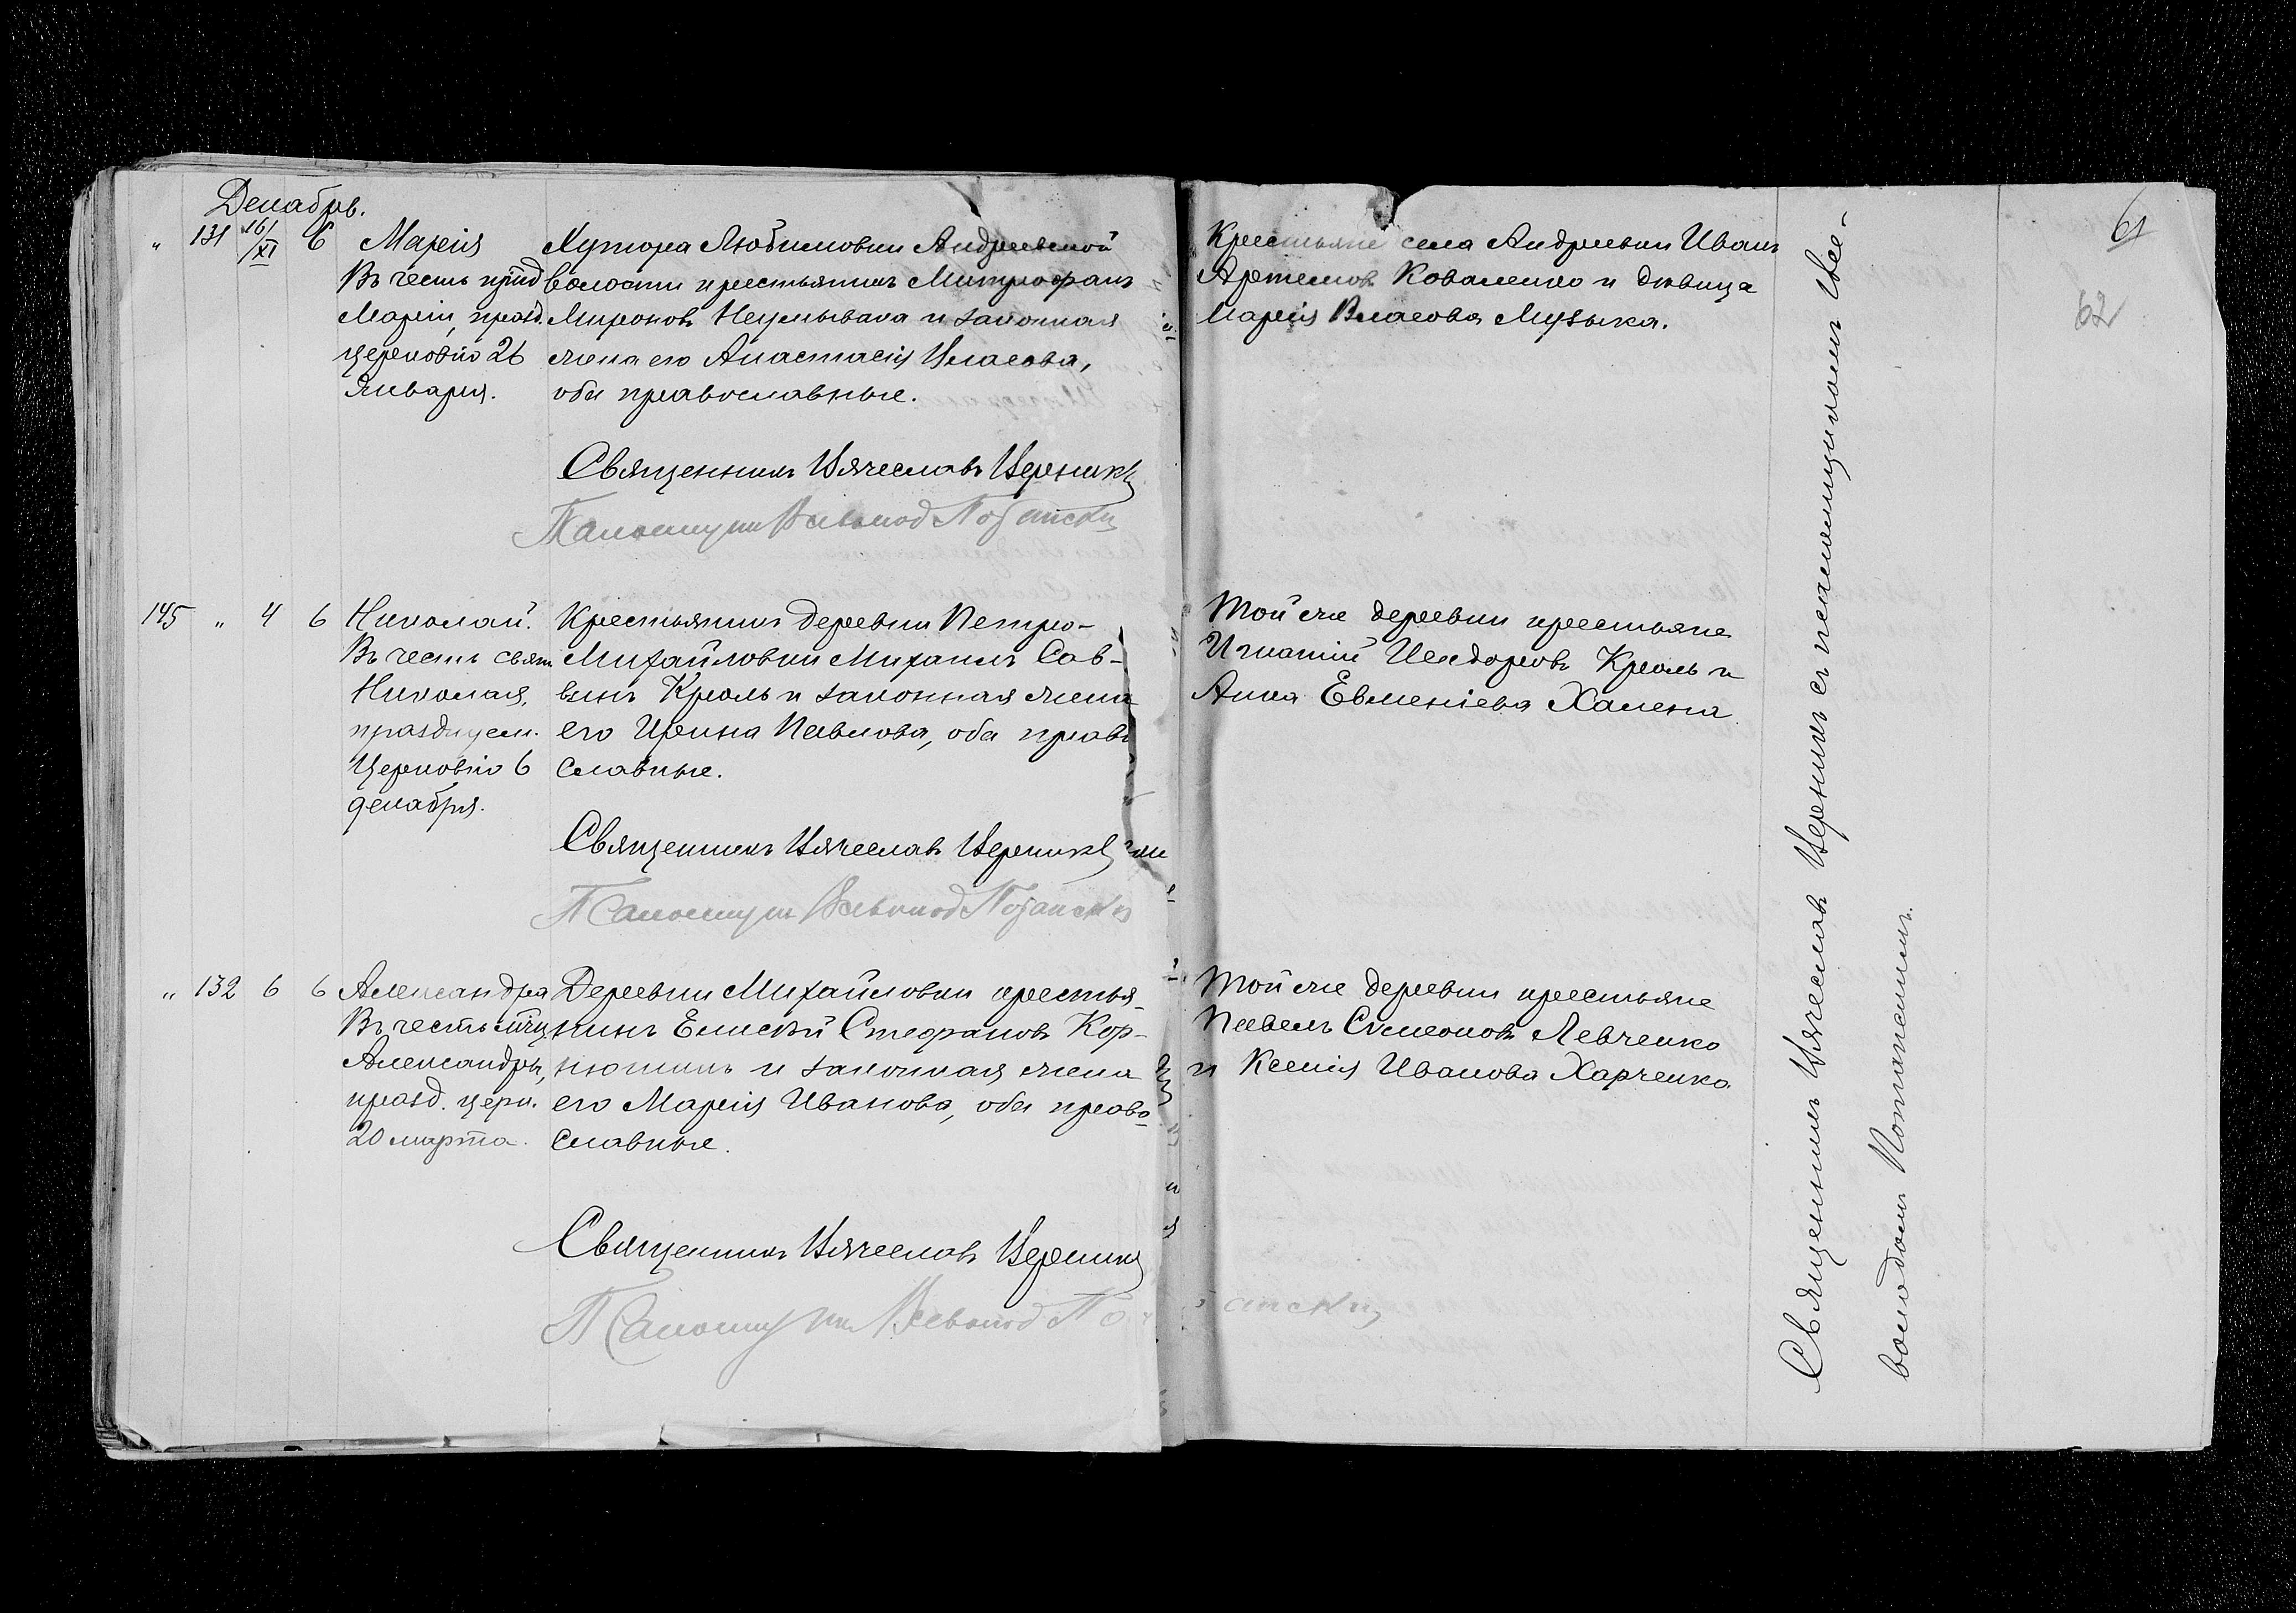 Декабрь.
" 131 26/XI 6 Марія
Въ честь прпд
Маріи, празд.
церковію 26
Января.
Хутора Любимовки Андреевской
волости крестьянинъ Митрофанъ
Мироновъ Неумывака и законная
жена его Анастасія Власова,
оба православные.
Священникъ Вячеславъ Верникъ
Псаломщикъ Всеволод
145 " 4 6 Николай.
Въ честь свят.
Николая,
празднуем.
Церковію 6
декабря.
Крестьянинъ деревни Петро-
Михайловки Михаилъ Сав-
винъ Кроль и законная жена
его Ирина Павлова, оба право
славные.
Священникъ Вячеславъ Верникъ
Псаломщикъ Всеволод
" 132 6 6 Александра
Въ честь мчц.
Александры,
празд. церк.
20 марта.
Деревни Михайловки крестья-
нинъ Елисей Стефановъ Кор-
нюшинъ и законная жена
его Марія Иванова, оба право-
славные.
Священникъ Вячеславъ Верникъ
Псаломщикъ Всеволод
61
62
Крестьяне села Андреевки Иванъ
Артемовъ Коваленко и дѣвица
Марія Власова Музыка.
Той же деревни крестьяне
Игнатій Исидоровъ Кроль и
Анна Евменіева Халена.
Той же деревни крестьяне
Павелъ Симеоновъ Левченко
и Ксенія Иванова Харченко.
Священникъ Вячеславъ Верникъ съ псаломщикомъ Все-
володомъ